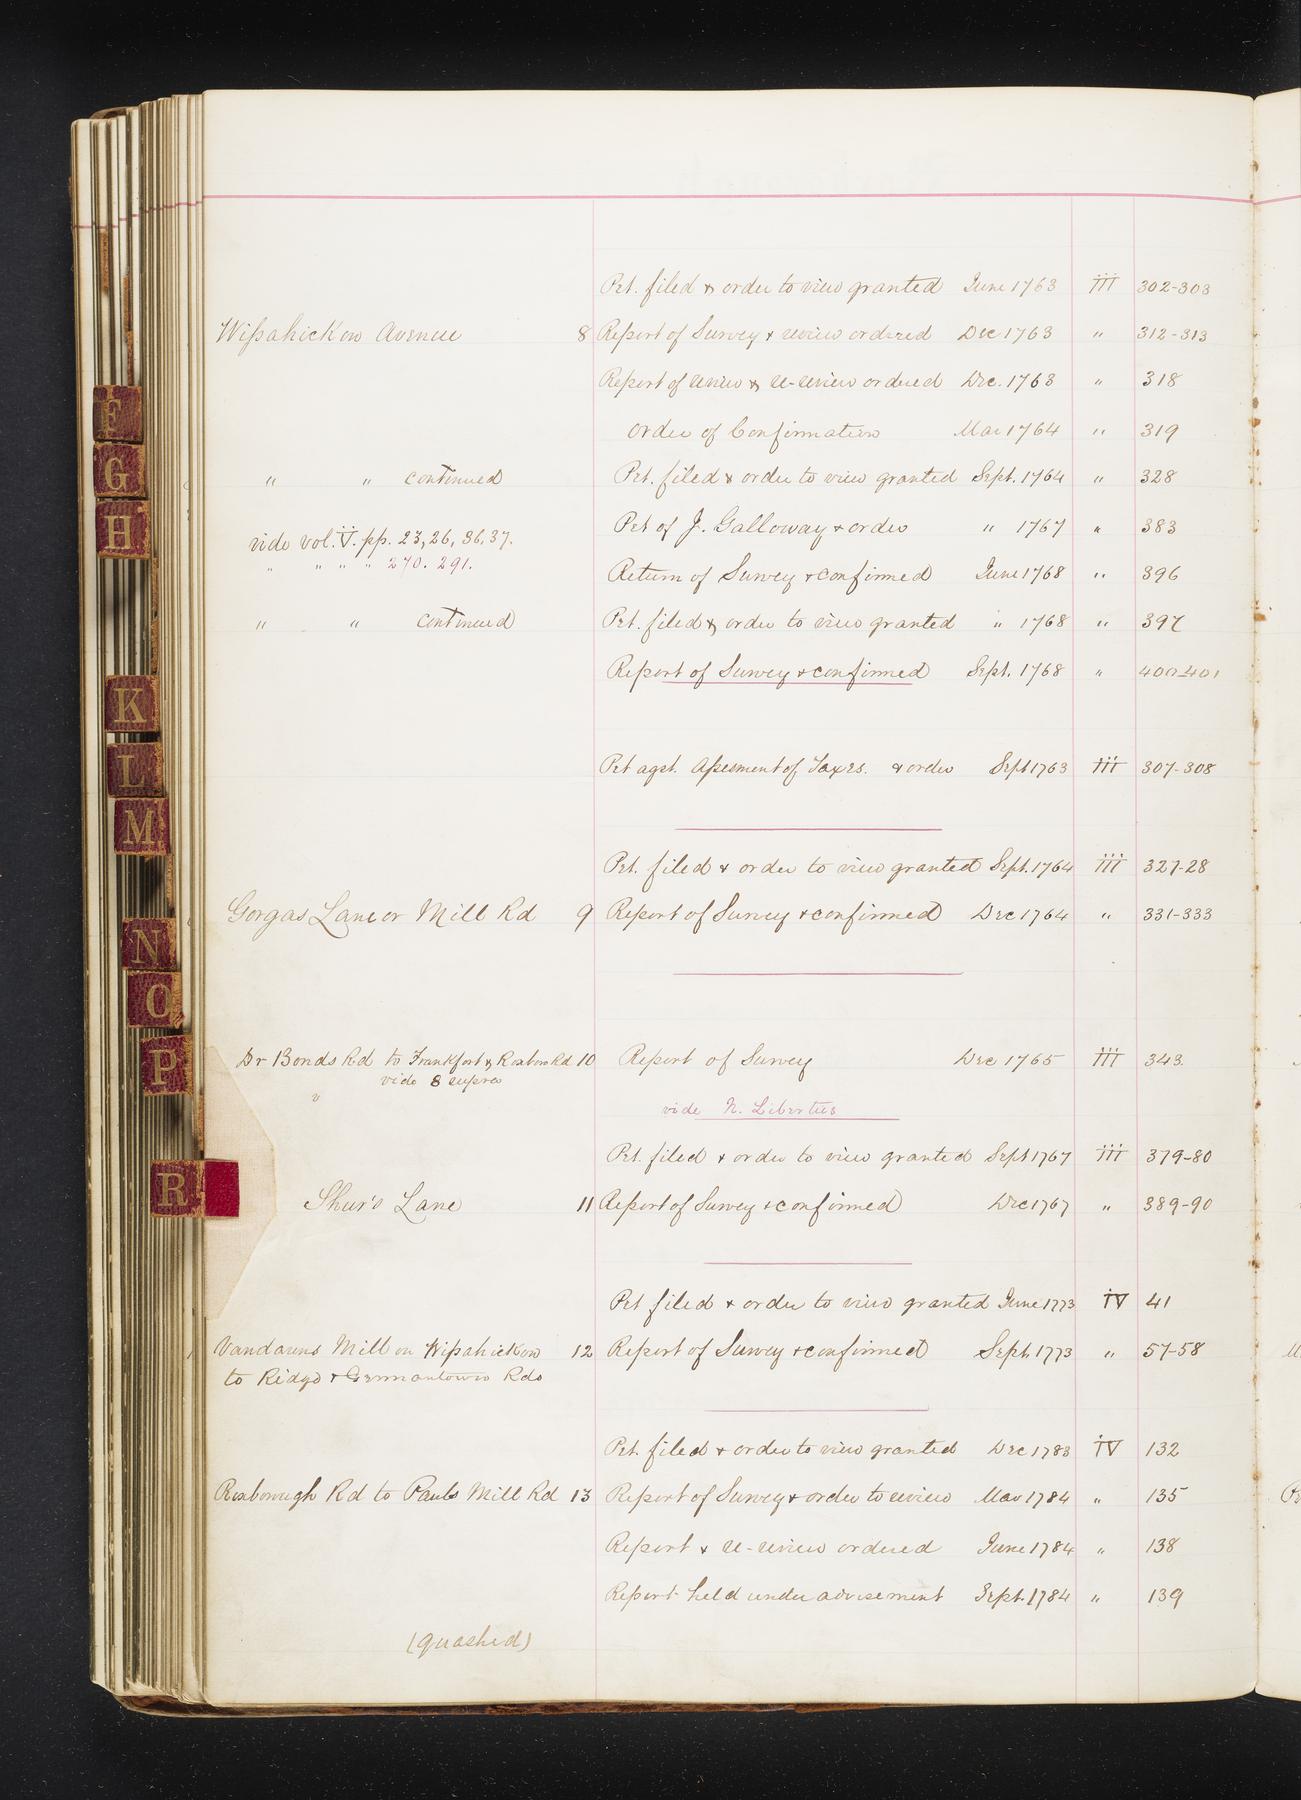 Pet. filed & order to view granted June 1763 iii 302-303
Wissahickon Avenue 8 Report of Survey & review ordered Dec 1763 " 312-313
Report of review & re-review ordered Dec. 1763 " 318
order of Confirmation Mar 1764 " 319
" " continued Pet. filed & order to view granted Sept. 1764 " 328
Pet of J. Galloway & order " 1767 " 383
vide vol. iv. pp. 23, 26, 36. 37.
" " " " 270. 291.
Return of Survey & confirmed June 1768 " 396
" " continued Pet. filed & order to view granted " 1768 " 397
Report of Survey & confirmed Sept. 1768 " 400-401
Pet agst. Assesment of Taxes. & order Sept 1763 iii 307-308
Pet. filed & order to view granted Sept. 1764 iii 327-28
Gorgas Lane or Mill Rd 9 Report of Survey & confirmed Dec 1764 " 331-333
Dr Bonds Rd to Frankfort & Roxboro Rd 10 Report of Survey Dec 1765 iii 343
vide 8 supra
"
vide N. Liberties
Pet. filed & order to view granted Sept 1767 iii 379-80
Shur's Lane 11 Report of Survey & confirmed Dec 1767 " 389-90
Pet filed & order to view granted June 1773 iv 41
Vandarens Mill on Wissahickon 12 Report of Survey & confirmed Sept. 1773 " 57-58
to Ridge & Germantown Rds
Pet. filed & order to view granted Dec 1783 iv 132
Roxborough Rd to Pauls Mill Rd 13 Report of Survey & order to review Mar 1784 " 135
Report & re-review ordered June 1784 " 138
Report held under advisement Sept. 1784 " 139
(quashed)
F
G
H
K
L
M
N
O
P
R